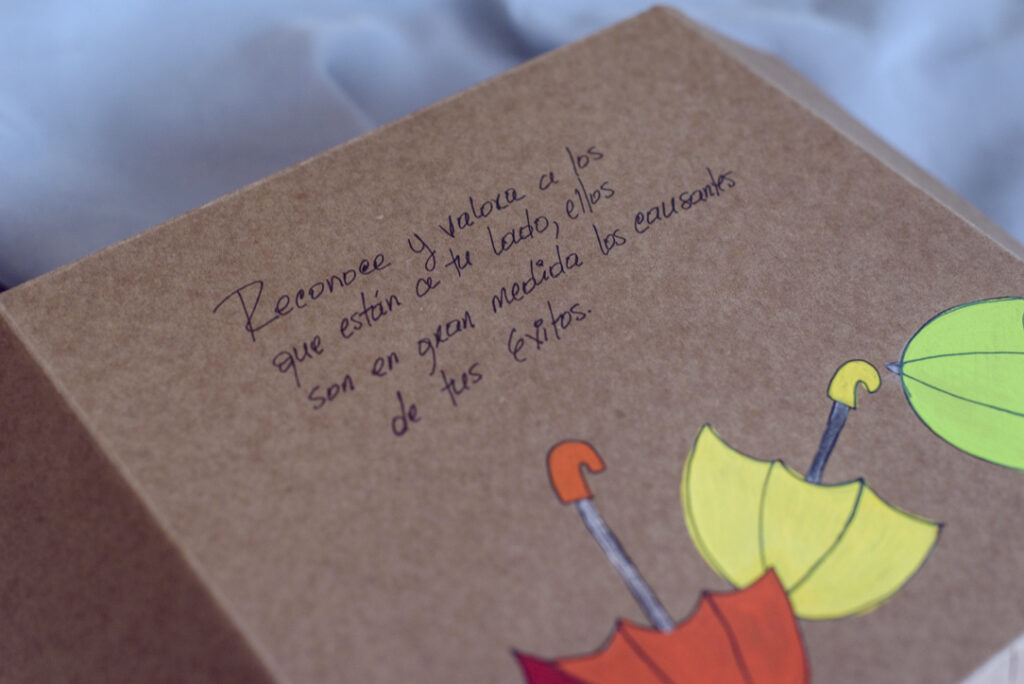 Reconoce y valora a los
que están a tu lado, ellos
son en gran medida los causantes
de tus éxitos.